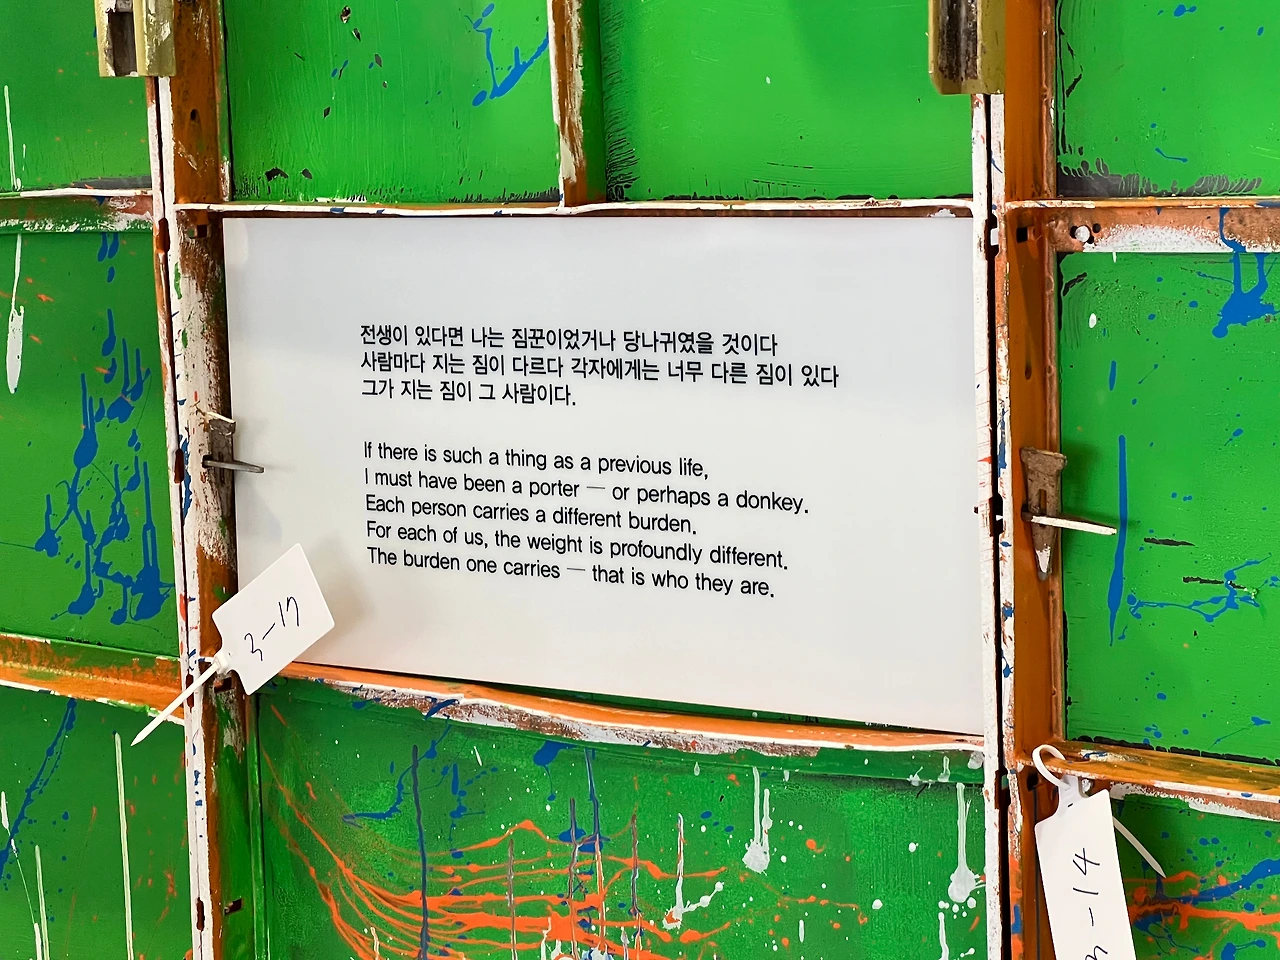 전생이 있다면 나는 짐꾼이었거나 당나귀였을 것이다
사람마다 지는 짐이 다르다 각자에게는 너무 다른 짐이 있다
그가 지는 짐이 그 사람이다.
If there is such a thing as a previous life,
I must have been a porter — or perhaps a donkey.
Each person carries a different burden.
For each of us, the weight is profoundly different.
The burden one carries — that is who they are.
3-17
3-14